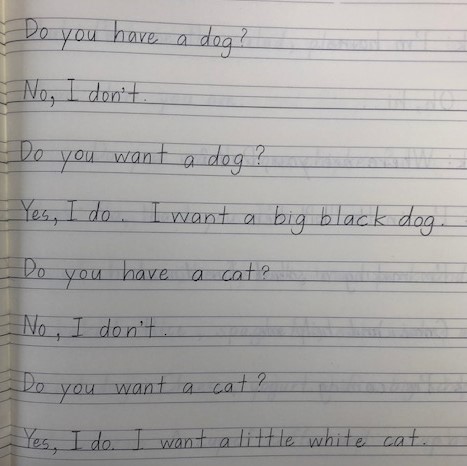 Do you have a dog?
No, I don't.
Do you want a dog?
Yes, I do. I want a big black dog.
Do you have a cat?
No, I don't.
Do you want a cat?
Yes, I do. I want a little white cat.